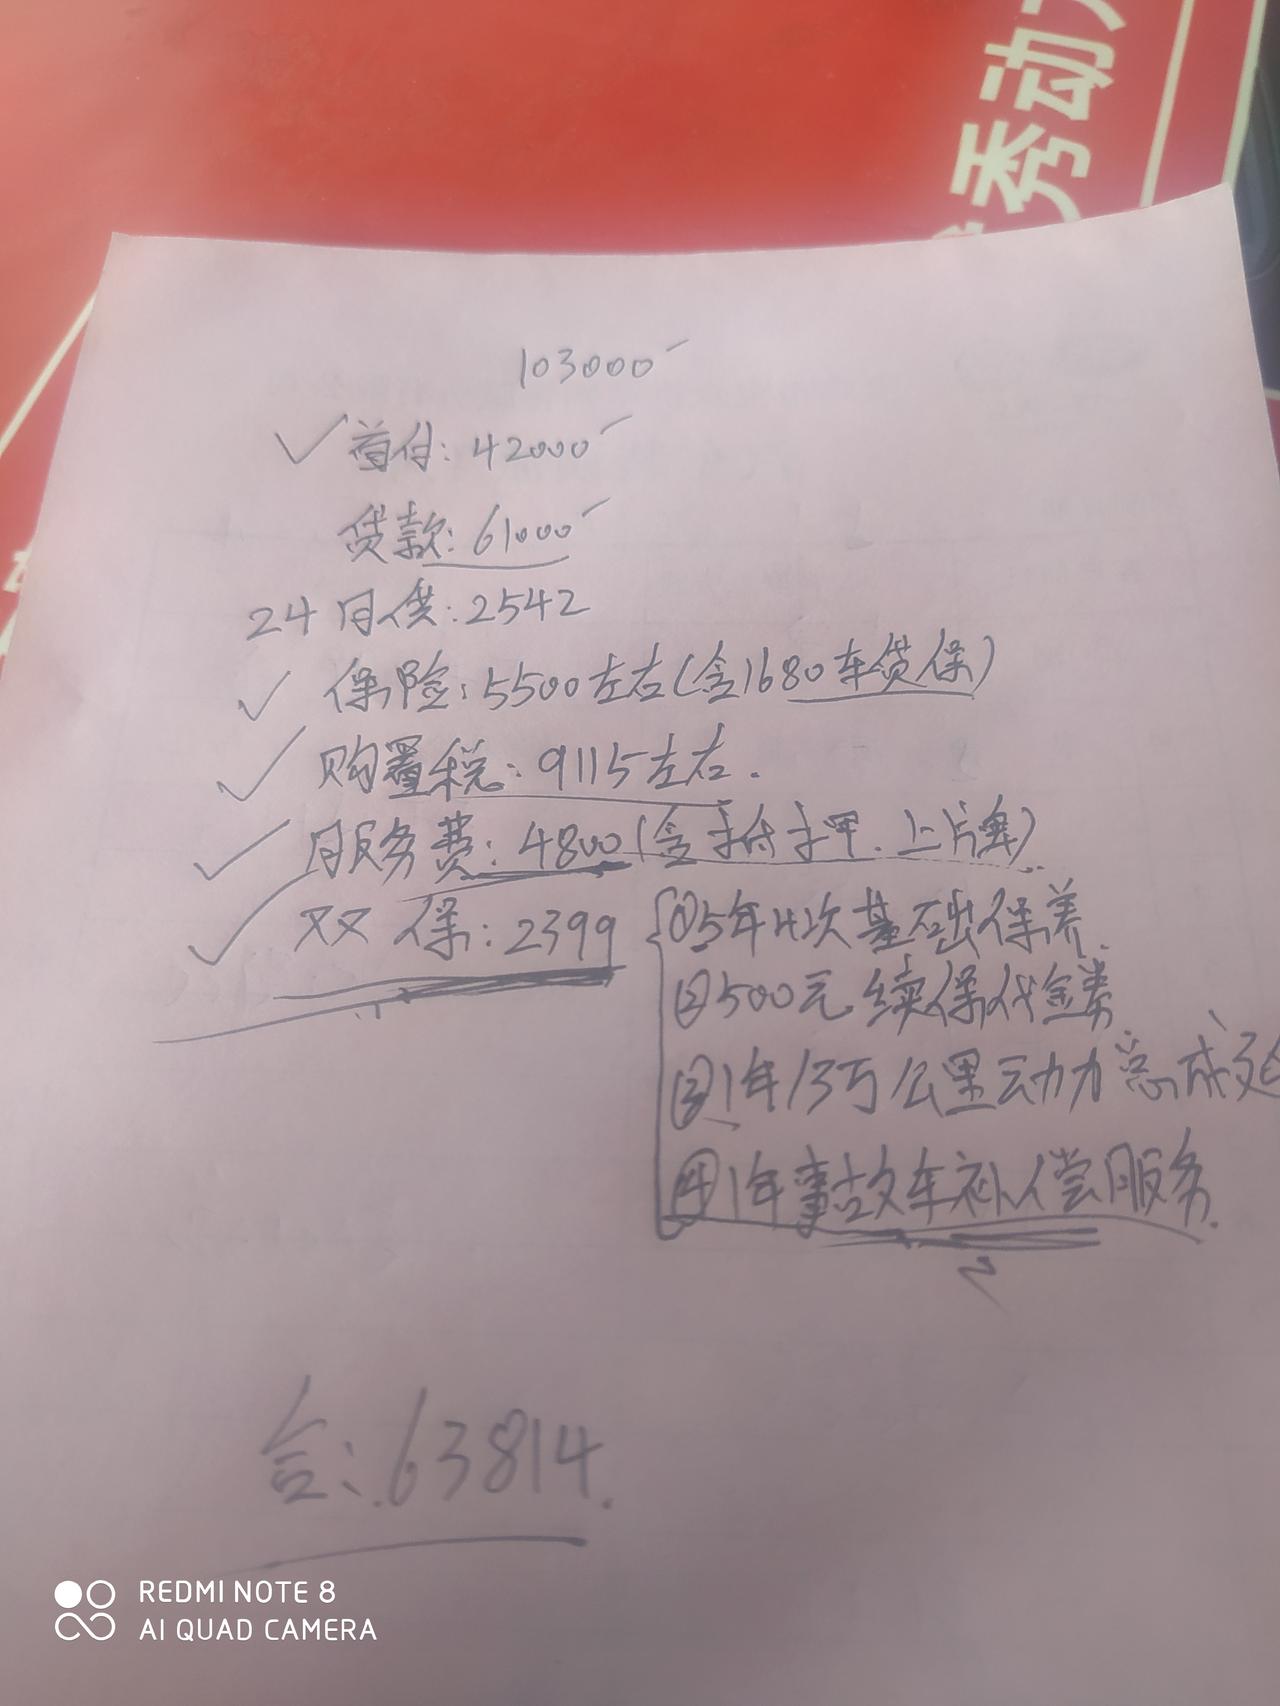 秀动力
103000
首付:42000
贷款:61000
24月供:2542
保险:5500左右(含1680车贷保)
购置税:9115左右.
服务费:4800(含手付手甲.上牌)
双保:2399
①5年4次基础保养.
②500元续保代金券
③1年/3万公里动力总成延
④1年事故车补偿服务.
合:63814.
REDMI NOTE 8
AI QUAD CAMERA